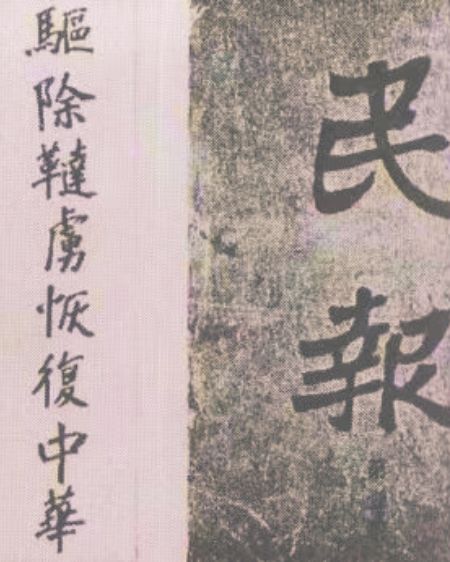 驅除韃虜恢復中華
民報